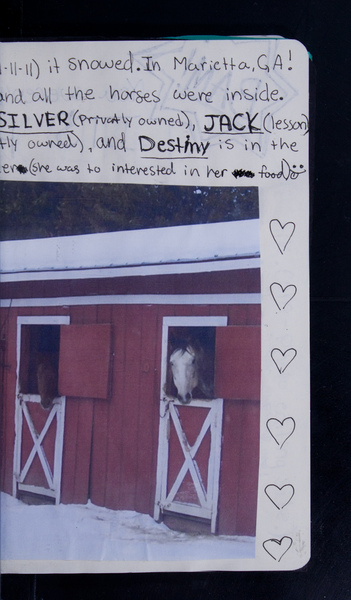 1-11-11) it snowed. In Marietta, GA!
and all the horses were inside.
SILVER (privatly owned), JACK (lesson)
tly owned), and Destiny is in the
er (she was to interested in her food)